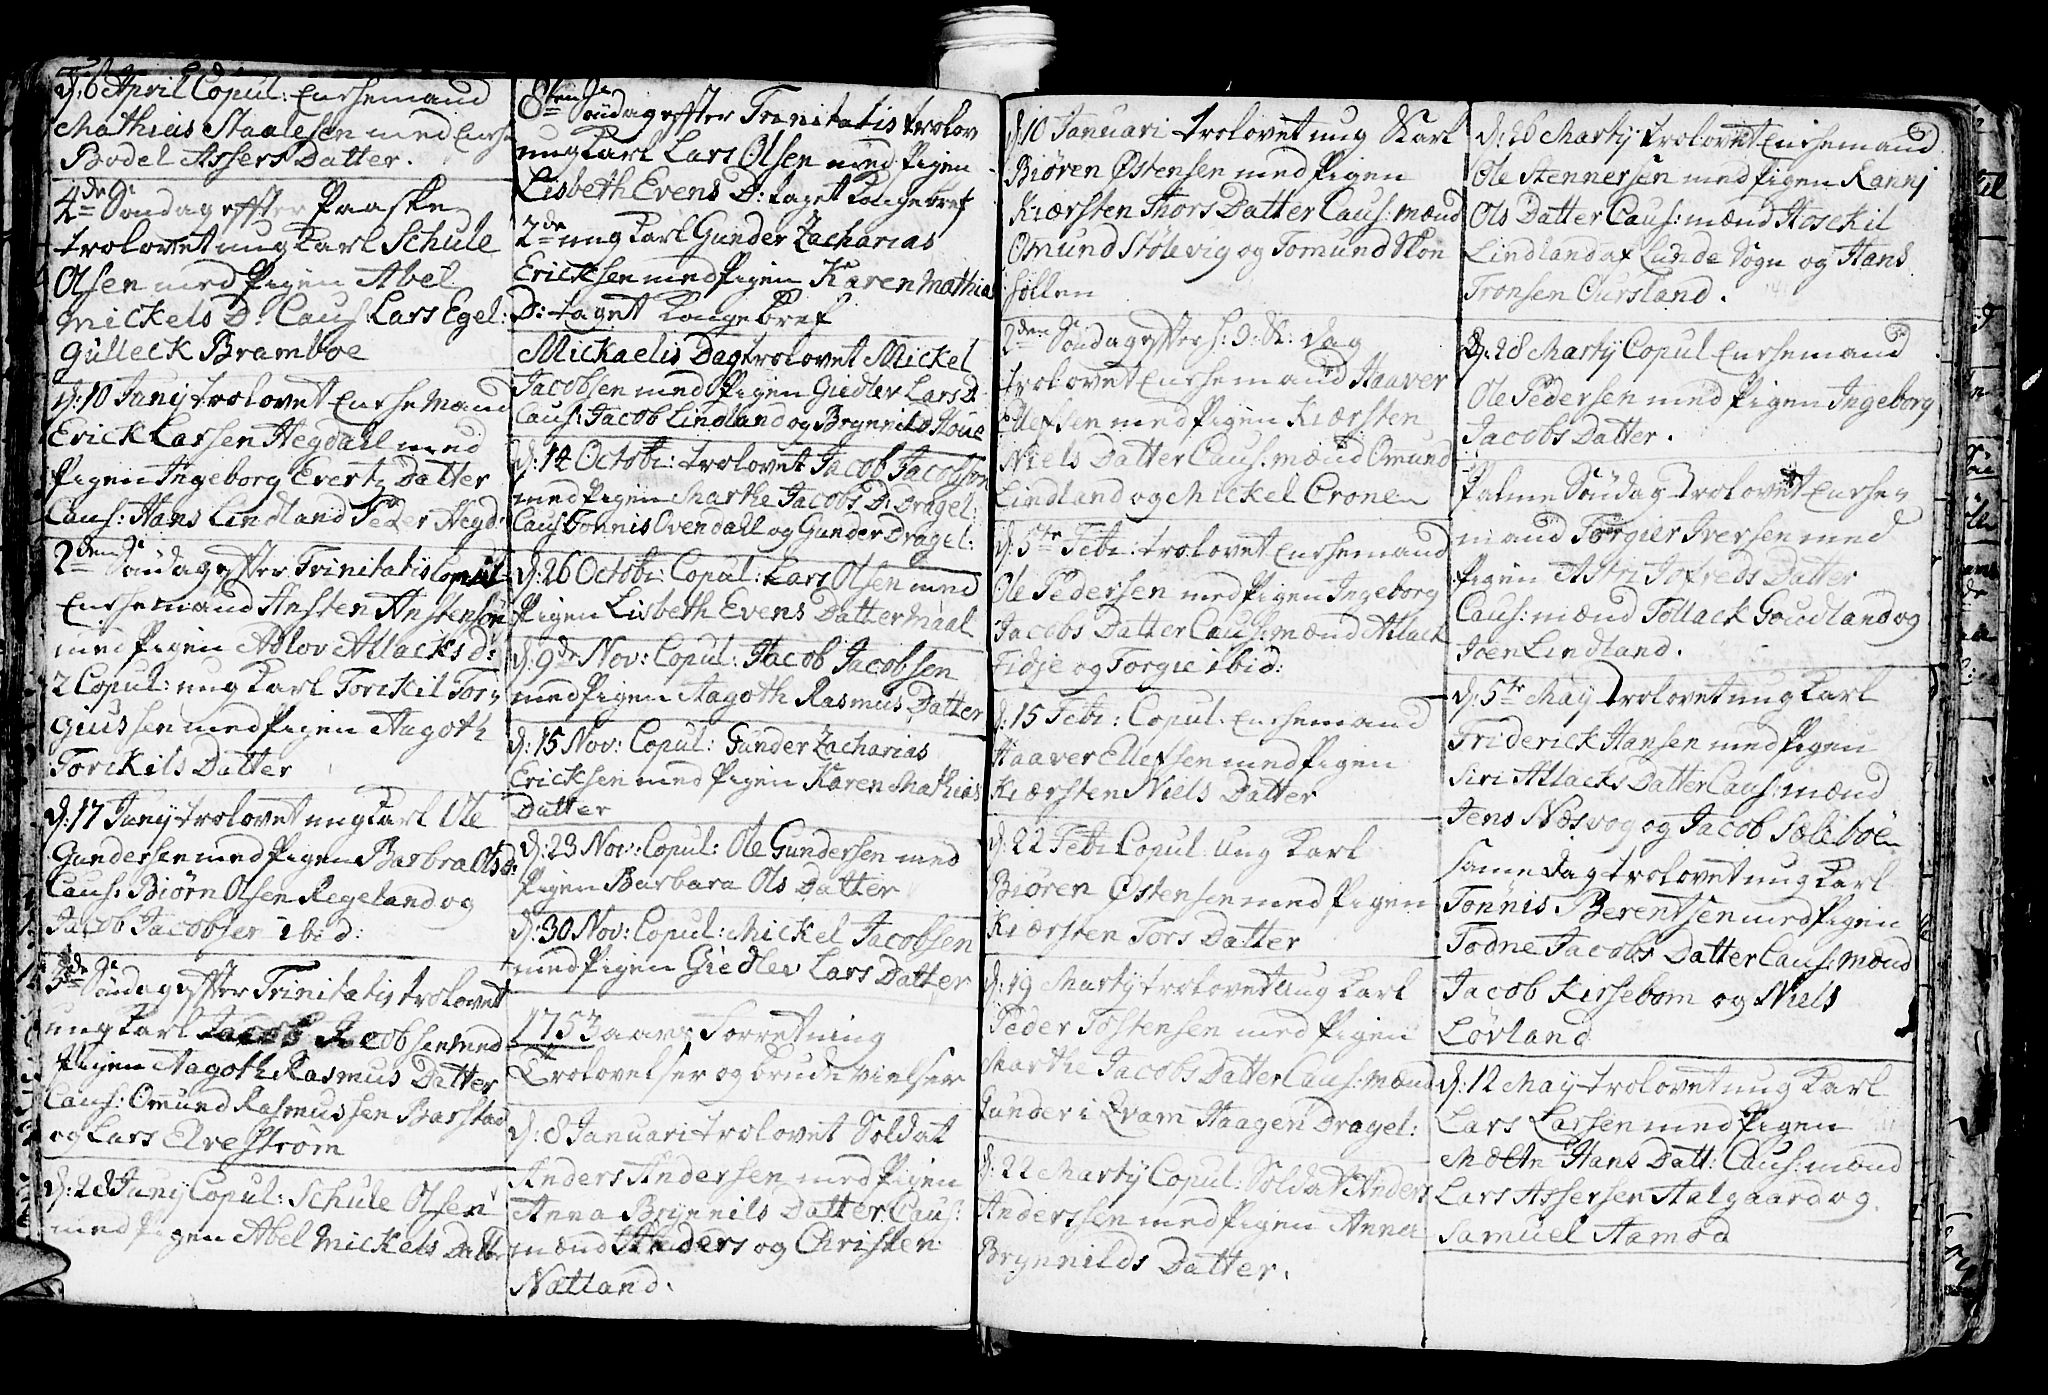 d: 6 April Copul: Enchemand
Mathias Staalesen med Enche
Bodel Assers Datter.
4de Se Søndag effter Paaske
trolovet ung Karl Schule
Olsen med Pigen Abel
Mickels D. Caus: Lars Egel:
Gulleck Bramboe
d: 10 Junij trolovet Enche Mand
Erick Larsen Hegdall med
Pigen Ingeborg Evertz Datter
Caus: Hans Lindland Peder Hegd:
2den Se Søndag effter Trinitatis Copul
Enchemand Ansten Anstensøn
med Pigen Adlov Atlacks d:
2 Copul: ung Karl Torckil Tor„
giussen med Pigen Aagoth
Torckils Datter
d: 17 Junij trolovet ung Karl Ole
Gundersen med Pigen Barbra Ols D:
Caus: Biørn Olsen Regeland og
Jacob Jacobsen ibid:
3de Se Søndag effter Trinitatis trolovet
ung Karl Jacob Jacobsen med
Pigen Aagoth Rasmus Datter
Caus: Omund Rasmussen Barstad
og Lars Elvestrøm
d: 28 Junij Copul: Schule Olsen
med Pigen Abel Mickels Datter
8tende Se Søndag effter Trinitatis trolov
ung Karl Lars Olsen med Pigen
Lisbeth Evens D: taget Kongebref
2de ung Karl Gunder Zacharias
Ericksen med Pigen Karen Mathias
D: taget Kongebref
Michaelis Dag trolovet Mickel
Jacobsen med Pigen Giedlev Lars D.
Caus: Jacob Lindland og Brynnild Houe
d: 14 Octobr: trolovet Jacob Jacobsen
med Pigen Marthe Jacobs D: Dragel:
Caus Tønnis Ovendall og Gunder Dragel:
d: 26 Octobr: Copul: Lars Olsen med
Pigen Lisbeth Evens Datter Maal
d: 9de Nov: Copul: Jacob Jacobsen
med Pigen Aagoth Rasmus Datter
d: 15 Nov: Copul: Gunder Zacharias
Ericksen med Pigen Karen Mathias
Datter
d: 23 Nov: Copul: Ole Gundersen med
Pigen Barbara Ols Datter
d: 30 Nov: Copul: Mickel Jacobsen
med Pigen Giedlev Lars Datter
1753 aars Forretning
Trolovelser og brude vielser
d: 8 Januari trolovet Soldat
Anders Andersen med Pigen
Anna Brynnils Datter Caus:
mænd Anders og Christen
Natland.
d: 10 Januari trolovet ung Karl
Biøren Østensen med Pigen
Kiærsten Thors Datter Caus: mænd
Omund Stølevig og Tomund Skon
søllen
2den Se Søndag effter h: 3: K: dag
trolovet Enchemand Haaver
Ellefsen med Pigen Kiærsten
Niels Datter Caus: mænd Omund
Lindland og Mickel Cronen
d: 5te Febr: trolovet Enchemand
Ole Pedersen med Pigen Ingeborg
Jacobs Datter Caus: mænd Atlack
Eidje og Torgie ibid:
d: 15 Febr: Copul. Enchemand
Haaver Ellefsen med Pigen
Kiærsten Niels Datter
d: 22 Febr Copul: Ung Karl
Biøren Østensen med Pigen
Kiærsten Tors Datter
d: 19 Martij trolovet Ung Karl
Peder Tostensen med Pigen
Marthe Jacobs Datter Caus: mænd
Gunder i Qvam Haagen Dragel:
d: 22 Martij Copul: Soldat Anders
Anderssen med Pigen Anna
Brynnilds Datter.
d: 26 Martij trolovet Enchemand
Ole Stennersen med Pigen Rannj
Ols Datter Caus: mænd Hosckil
Lindland af Lunde Sogn og Hans
Tronsen Oursland.
d: 28 Martij Copul Enchemand
Ole Pedersen med Pigen Ingeborg
Jacobs Datter.
Palme Søndag trolovet Enche„
mand Torgier Iversen med
Pigen Astri Jofreds Datter
Caus: mænd Tollack Goudland og
Joen Lindland.
d: 5te May trolovet ung Karl
Friderick Hansen med Pigen
Siri Atlacks Datter Caus: mænd
Jens Næsvog og Jacob Sæliboe
samme dag trolovet ung Karl
Tønnis Berentsen med Pigen
Todne Jacobs Datter Caus: mænd
Jacob Kirsebom og Niels
Løvland
d: 12 May trolovet ung Karl
Lars Larsen med Pigen
Mætte Hans Datt: Caus: mænd
Lars Assersen Aalgaard og
Samuel Hamra